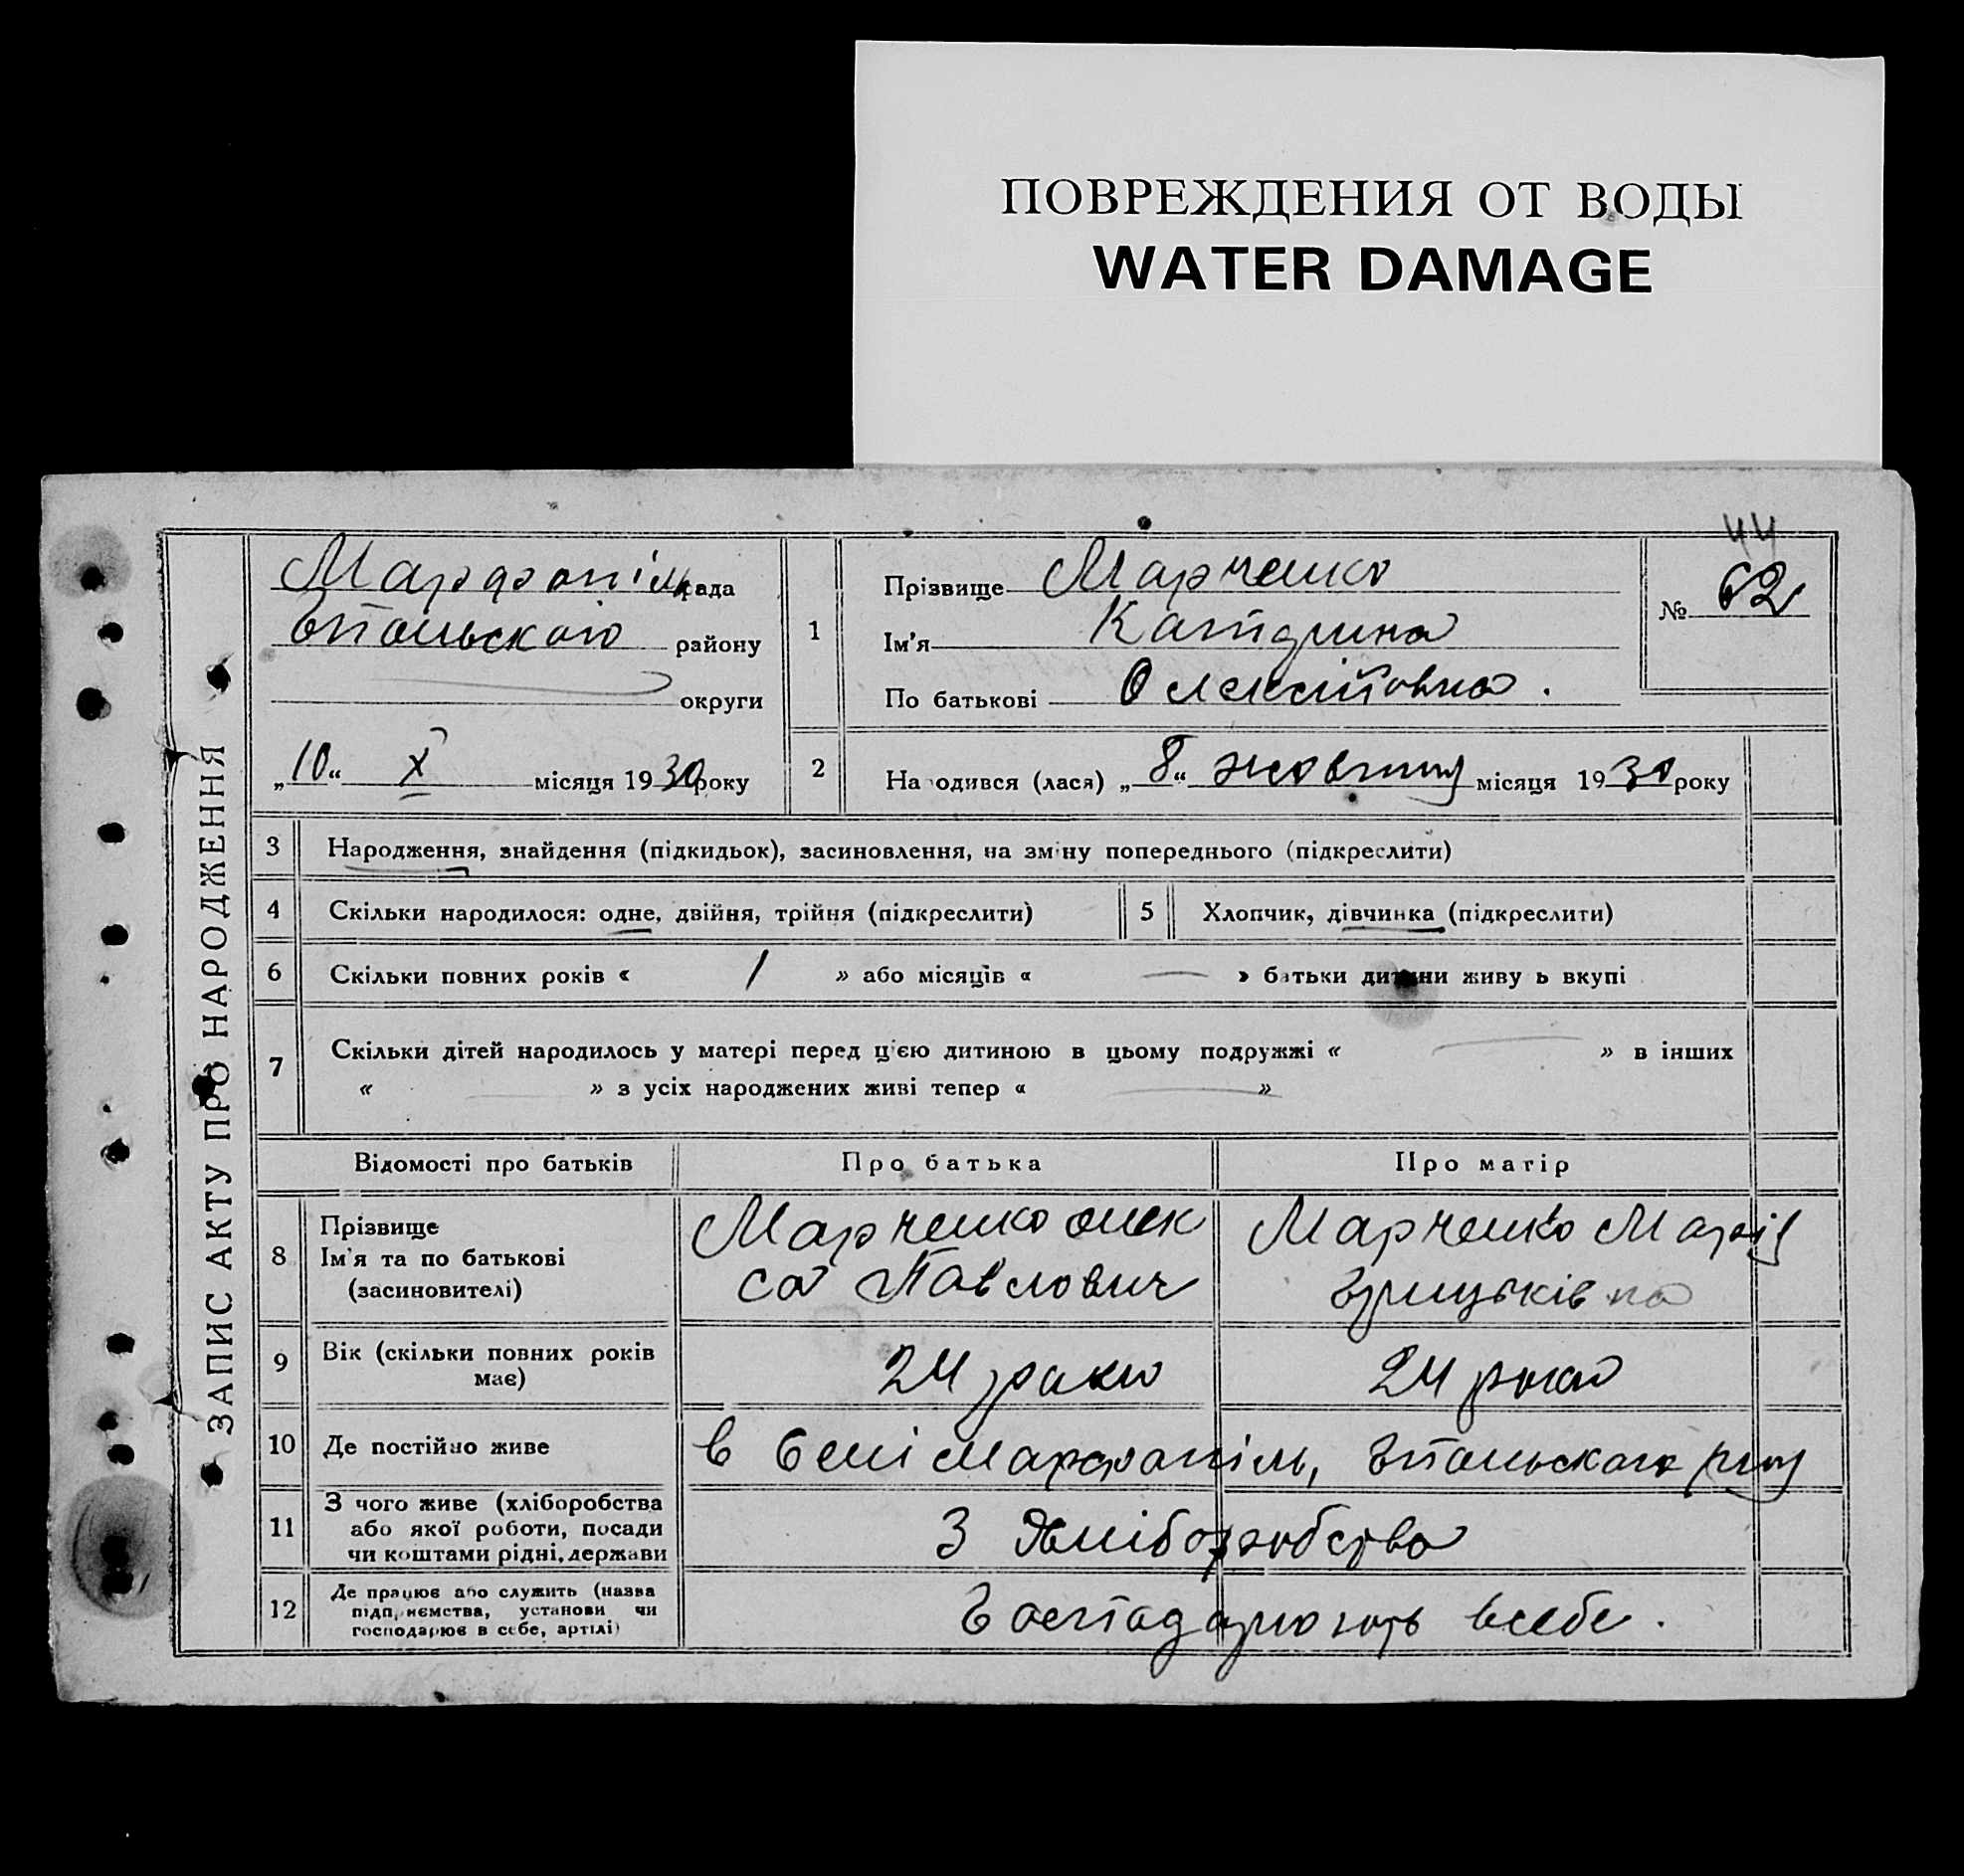 ПОВРЕЖДЕНИЯ ОТ ВОДЫ
WATER DAMAGE
44
ЗАПИС АКТУ ПРО НАРОДЖЕННЯ
Марфопіль рада
району
округи
„10“ X місяця 1930 року
1
Прізвище Марченко
Ім'я Катерина
По батькові Олексіївна.
№ 62
2
На одився (лася) „8“ жовтня місяця 1930 року
3 Народження, знайдення (підкидьок), засиновлення, на зміну попереднього (підкреслити)
4 Скільки народилося: одне, двійня, трійня (підкреслити) 5 Хлопчик, дівчинка (підкреслити)
6 Скільки повних років « 1 » або місяців « — » батьки дитини живу ь вкупі
7 Скільки дітей народилось у матері перед цією дитиною в цьому подружжі « — » в інших
« — » з усіх народжених живі тепер « — »
Відомості про батьків Про батька Про матір
8 Прізвище
Ім'я та по батькові
(засиновителі)
Марченко Олек
са Павлович
Марченко Марія
Грицьківна
9 Вік (скільки повних років
має)
24 роки
24 роки
10 Де постійно живе
в селі Марфопіль,
11 З чого живе (хліборобства
або якої роботи, посади
чи коштами рідні, держави
З Хліборобства
12 Де працює або служить (назва
підприємства, установи чи
господарює в себе, артілі)
Господарюють всебе.